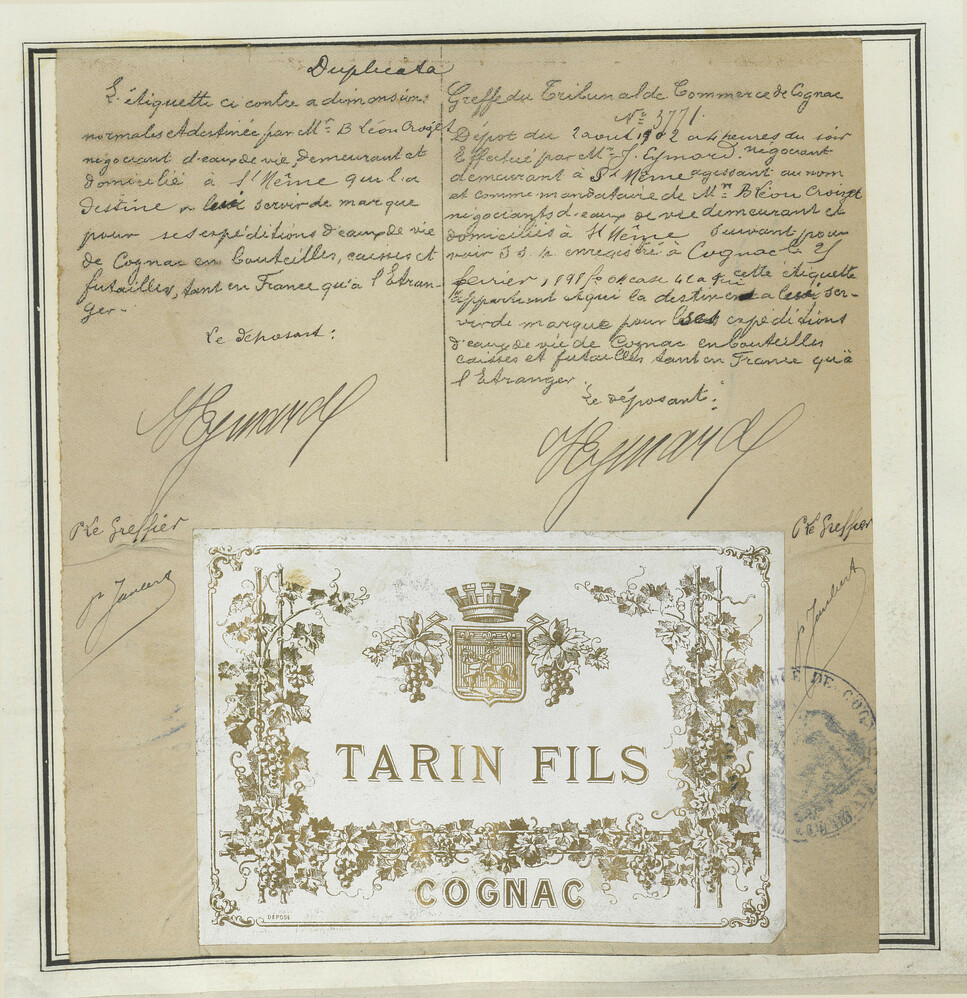 Duplicata
L'étiquette ci contre a dimensions
normales et destinée par Mr. B Léon Croizet
négociant d'eaux de vie, demeurant et
domicilié à St Même qui la
destine a lui servir de marque
pour ses expéditions d'eaux de vie
de Cognac en bouteilles, caisses et
futailles, tant en France qu'à l'Etran-
ger.-
Le déposant:
Eymard
Pr le Greffier
Greffe du Tribunal de Commerce de Cognac
No 3771.
Dépot du 2 aout 1902 a 4 heures du soir
Effectué par Mr. J. Eymard. négociant
demeurant à St Même agissant au nom
et comme mandataire de Mr. B Léon Croizet
négociants d'eaux de vie demeurant et
domiciliés à St Même Suivant pou-
voir s.s.p. enregistré à Cognac le 25
février case
cette étiquette
appartient et qui la destine a lui ser-
vir de marque pour ses expéditions
d'eaux de vie de Cognac en bouteilles
caisses et futailles tant en France qu'à
l'Etranger.
Le déposant:
Eymard
Pr le Greffier
TARIN FILS
COGNAC
DÉPOSÉ
DE COGN